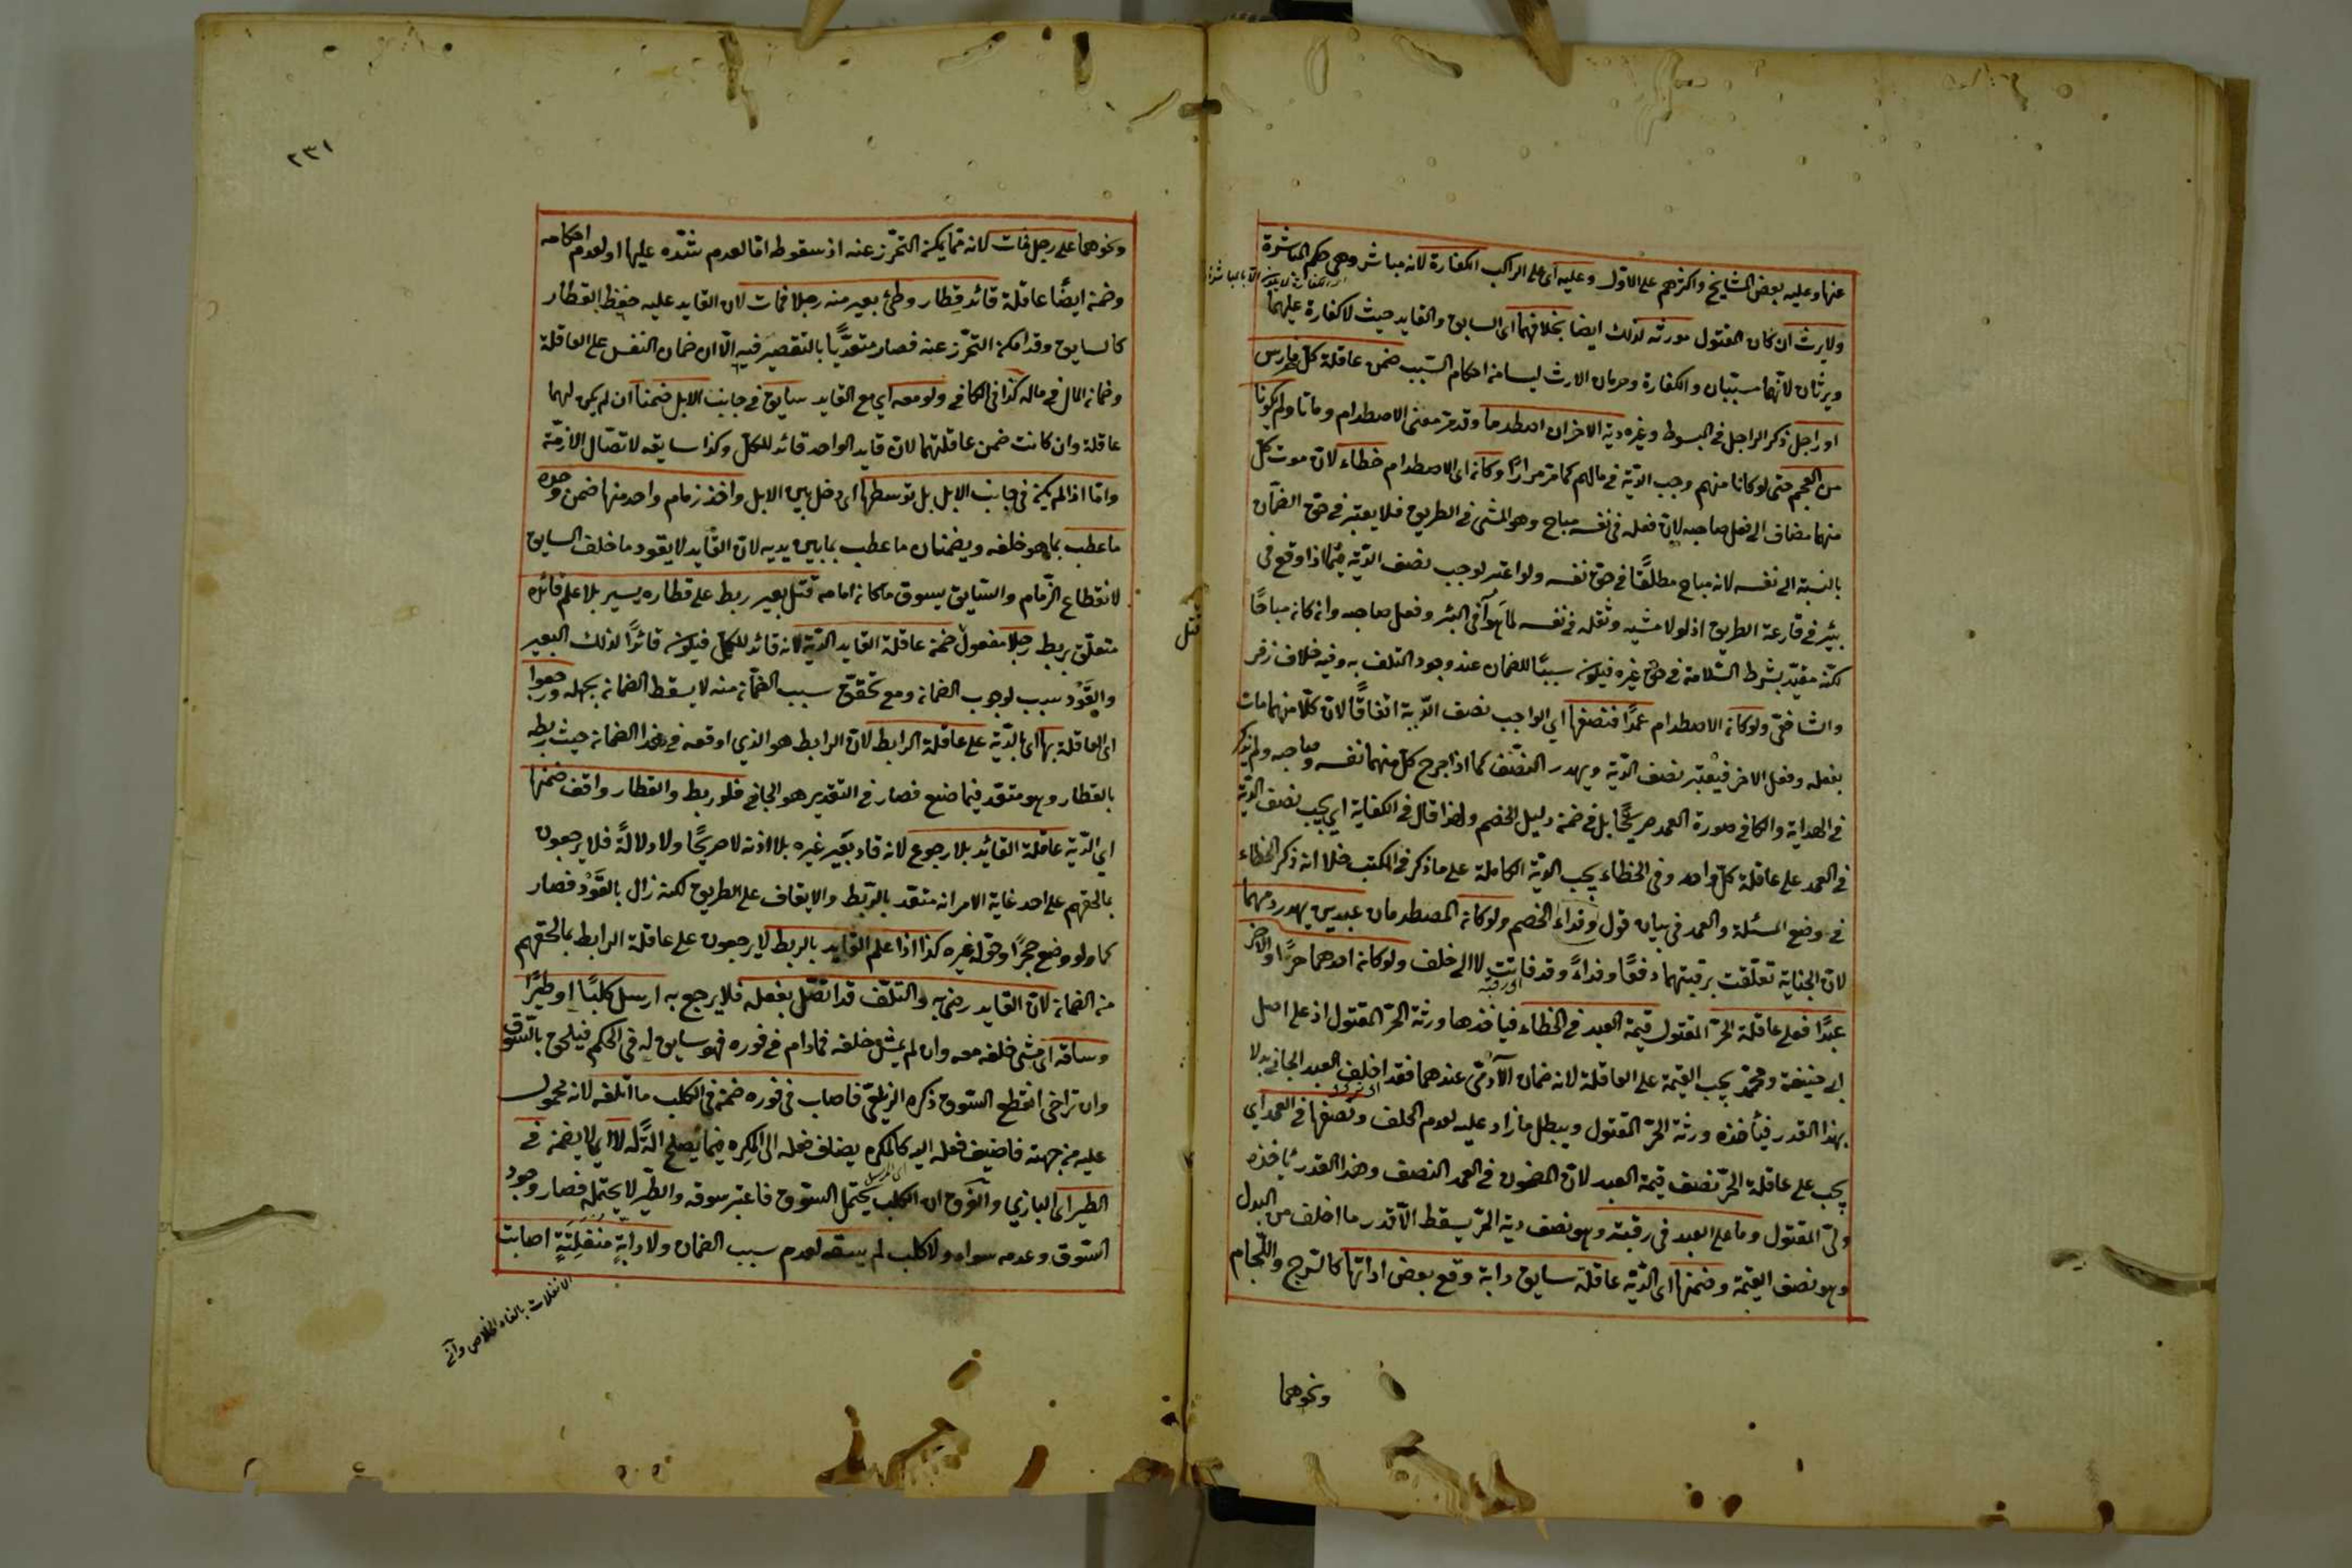 عنها وعليه بعض المشايخ واكثرهم على الاول وعليه اى على الراكب الكفارة لانه مباشر وهى حكم المباشرة
ولا يرث ان كان المقتول مورثه لذلك ايضا بخلافهما اى السايق والقايد حيث لا كفارة عليهما
ويرثان لانهما مسببان والكفارة وحرمان الارث ليسا من احكام السبب ضمن عاقلة كل فارس
او راجل ذكر الراجل في المبسوط وغيره دية الاخر ان اصطدما وقد مر معنى الاصطدام وماتا ولم يكونا
من العجم حتى لو كانا منهم وجب الدية في مالهم كما مر مرارًا وكان اى الاصطدام خطاء لان موت كل
منهما مضاف الى فعل صاحبه لان فعله في نفسه مباح وهو المشى في الطريق فلا يعتبر في حق الضمان
بالنسبة الى نفسه لانه مباح مطلقًا في حق نفسه ولو اعتبر لوجب نصف الدية فيما اذا وقع في
بئر في قارعة الطريق اذ لولا مشيه وثقله في نفسه لما هوى في البئر وفعل صاحبه وان كان مباحًا
لكنه مقيد بشرط السلامة في حق غيره فيكون سببًا للضمان عند وجود التلف به وفيه خلاف زفر
والشافعى ولو كان الاصطدام عمدًا فنصفها اي الواجب نصف الدية اتفاقًا لان كلا منهما مات
بفعله وفعل الاخر فيعتبر نصف الدية ويهدر النصف كما اذا جرح كل منهما نفسه وصاحبه ولم يذكر
في الهداية والكافي صورة العمد صريحًا بل في ضمن دليل الخصم ولهذا قال في الكفاية اي يجب نصف الدية
في العمد على عاقلة كل واحد وفي الخطاء يجب الدية الكاملة على ما ذكر في الكتب خلا انه ذكر الخطاء
في وضع المسئلة والعمد في بيان قول الخصم ولو كان المصطدمان عبدين يهدر دمهما
لان الجناية تعلقت برقبتهما دفعًا وفداءً وقد فاتت لا الى خلف ولو كان احدهما حرًا والاخر
عبدًا فعلى عاقلة الحر المقتول قيمة العبد في الخطاء فيأخذها ورثة الحر المقتول اذ على اصل
ابي حنيفة ومحمد يجب القيمة على العاقلة لانه ضمان الآدمى عندهما فقد اخلف العبد الجاني بدلا
بهذا القدر فيأخذه ورثة الحر المقتول ويبطل ما زاد عليه لعدم الخلف ونصفها في العمد اي
يجب على عاقلة الحر نصف قيمة العبد لان المضمون في العمد النصف وهذا القدر يأخذه
ولي المقتول وما على العبد في رقبته وهو نصف دية الحر يسقط الا قدر ما اخلف من البدل
وهو نصف القيمة وضمنها اى الدية عاقلة سايق دابة وقع بعض اداتها كالسرج واللجام
ونحوهما
٢٣١
ونحوهما على رجل فمات لانه مما يمكن التحرز عنه اذ سقوطه اما لعدم شده عليها او لعدم احكامه
وضمن ايضًا عاقلة قائد قطار وطئ بعير منه رجلا فمات لان القايد عليه حفظ القطار
كالسايق وقد امكن التحرز عنه فصار متعديًا بالتقصير فيه الا ان ضمان النفس على العاقلة
وضمان المال في ماله كذا في الكافي ولو معه اي مع القايد سايق في جانب الابل ضمنا ان لم يكن لهما
عاقلة وان كانت ضمن عاقلتهما لان قايد الواحد قائد للكل وكذا سايقه لاتصال الازمة
واما اذا لم يكن في جانب الابل بل توسطها اى دخل بين الابل واخذ زمام واحد منها ضمن وحده
ما عطب بما هو خلفه ويضمنان ما عطب بما بين يديه لان القايد لا يقود ما خلف السايق
لانقطاع الزمام والسايق يسوق ما كان امامه قتل بعير ربط على قطار يسير بلا علم قائده
متعلق بربط رجلا مفعول ضمن عاقلة القايد الدية لانه قائد للكل فيكون قائدًا لذلك البعير
والقود سبب لوجوب الضمان ومع تحقق سبب الضمان منه لا يسقط الضمان بجهله ورجعوا
اى العاقلة بها اى بالدية على عاقلة الرابط لان الرابط هو الذي اوقعه في هذا الضمان حيث ربطه
بالقطار وهو متعد فيما صنع فصار في التقدير هو الجاني فلو ربط والقطار واقف ضمنها
اي الدية عاقلة القائد بلا رجوع لانه قاد بعير غيره بلا اذنه لا صريحًا ولا دلالةً فلا يرجعون
بما لحقهم على احد غاية الامر انه متعد بالربط والايقاف على الطريق لكنه زال بالقود فصار
كما ولو وضع حجرًا وحوله غيره كذا اذا علم القايد بالربط لا يرجعون على عاقلة الرابط بما لحقهم
من الضمان لان القايد رضى به والتلف قد اتصل بفعله فلا يرجع به ارسل كلبًا او طيرًا
وساقه اى مشى خلفه معه وان لم يمش خلفه فما دام في فوره فهو سايق له في الحكم فيلحق بالسوق
وان تراخى انقطع السوق ذكره الزيلعى فاصاب في فوره ضمن في الكلب ما اتلفه لانه محمول
عليه من جهته فاضيف فعله اليه كالمكره يضاف فعله الى المكره فيما يصلح آلة له لا اى لا يضمن في
الطير اى البازي والفرق ان الكلب يحتمل السوق فاعتبر سوقه والطير لا يحتمله فصار وجود
السوق وعدمه سواء ولا كلب لم يسقه لعدم سبب الضمان ولا دابة منفلتة اصابت
الانفلات بالفاء الخلاص